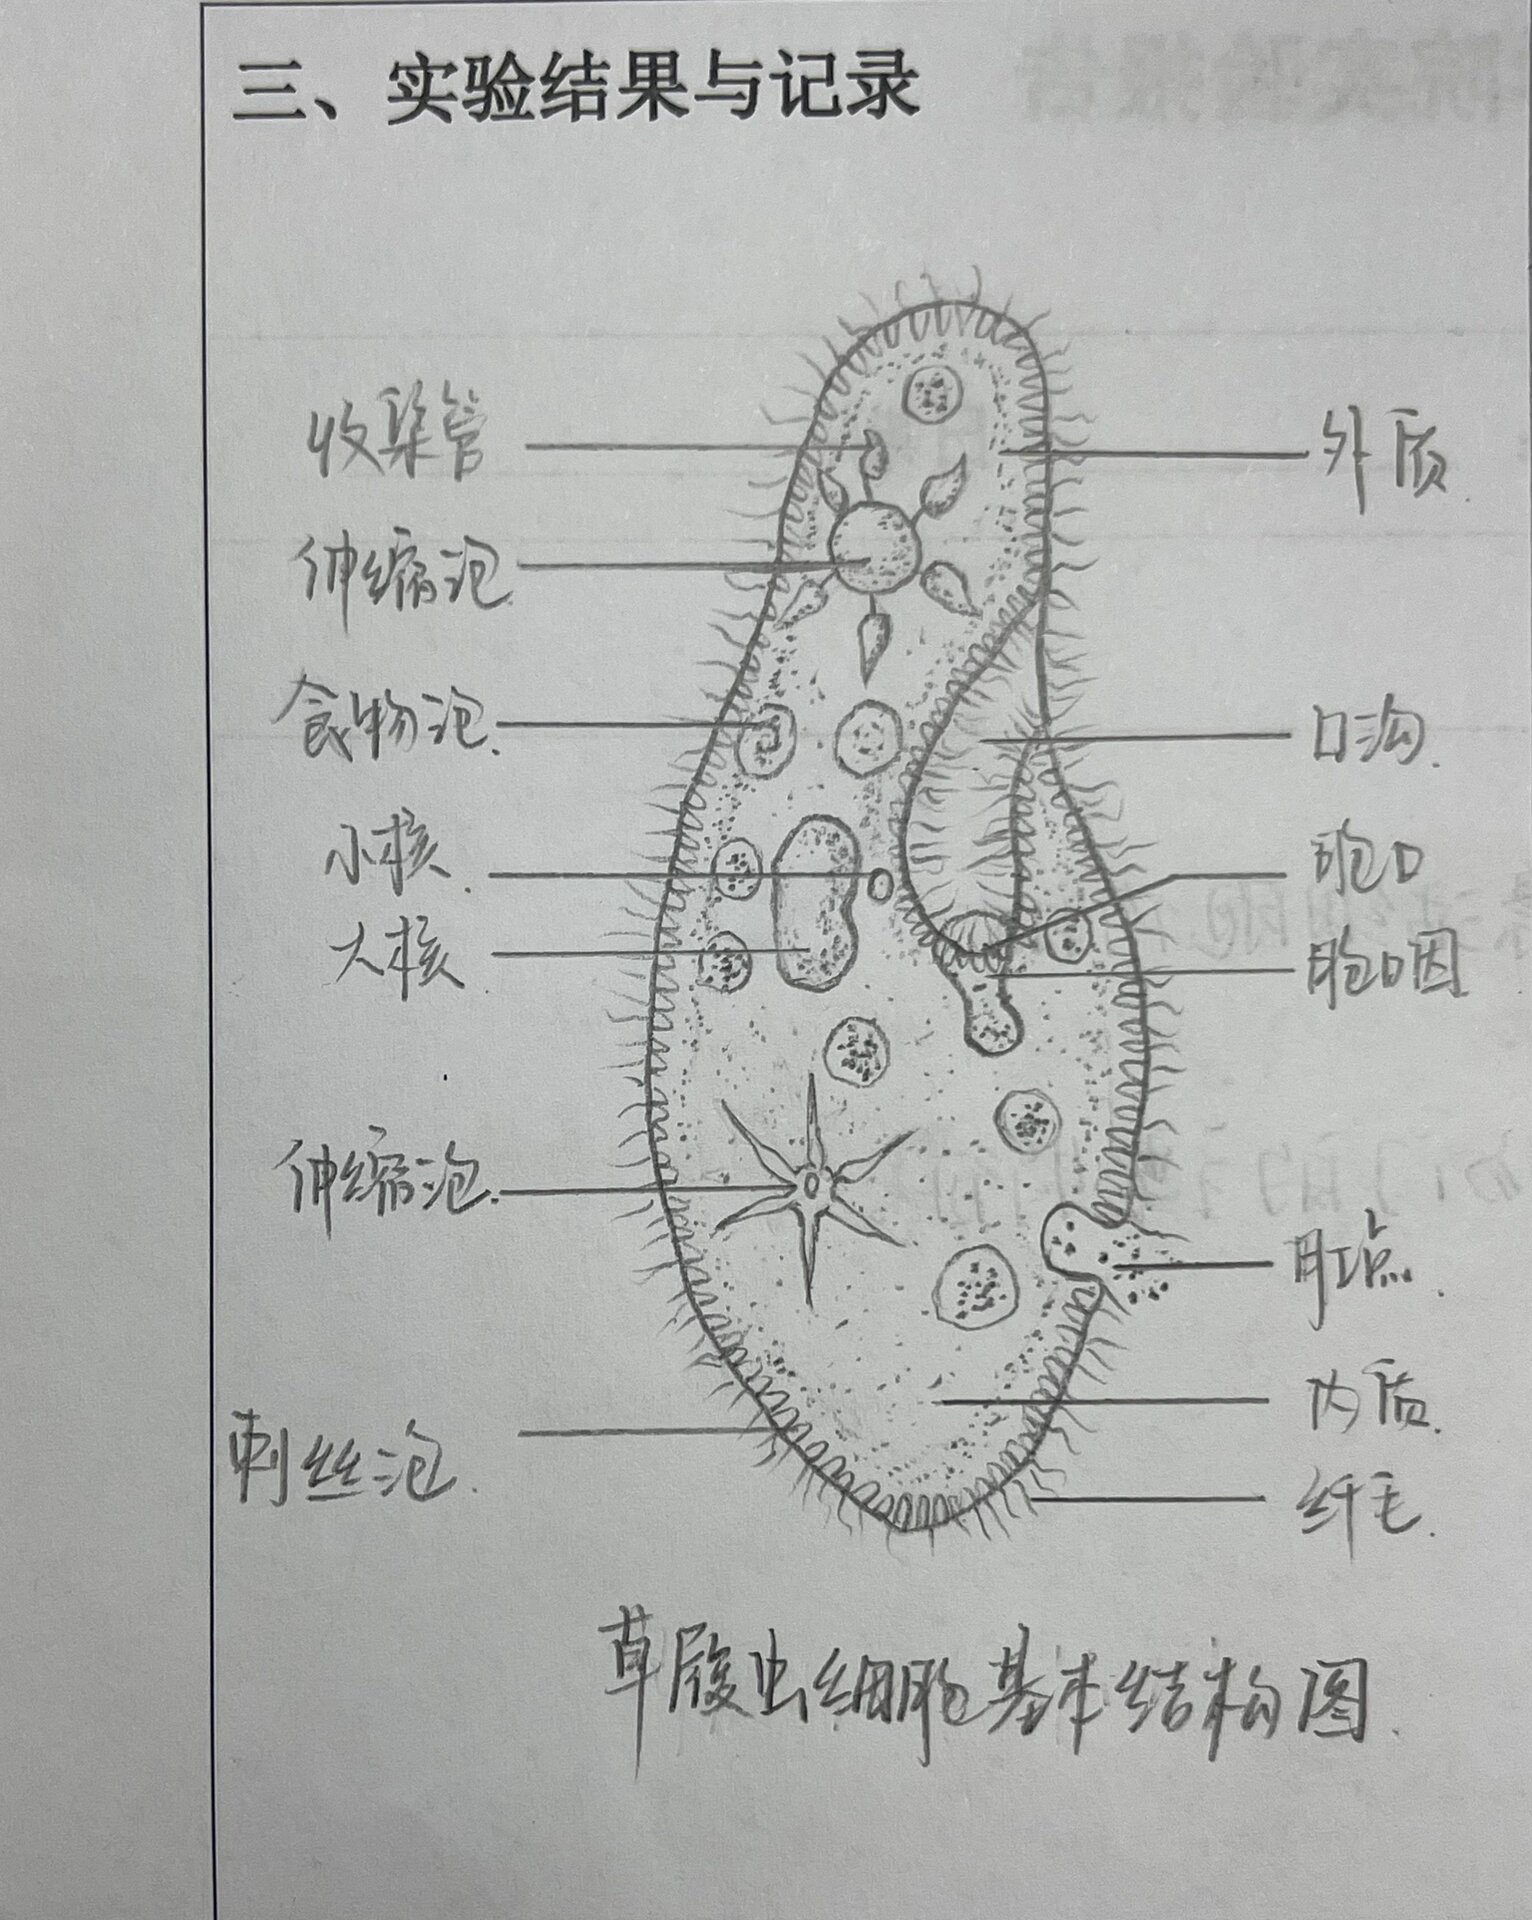 三、实验结果与记录
收集管
外质.
伸缩泡.
食物泡.
口沟.
小核.
胞口
大核.
胞咽
伸缩泡.
肛点.
内质.
刺丝泡.
纤毛.
草履虫细胞基本结构图.